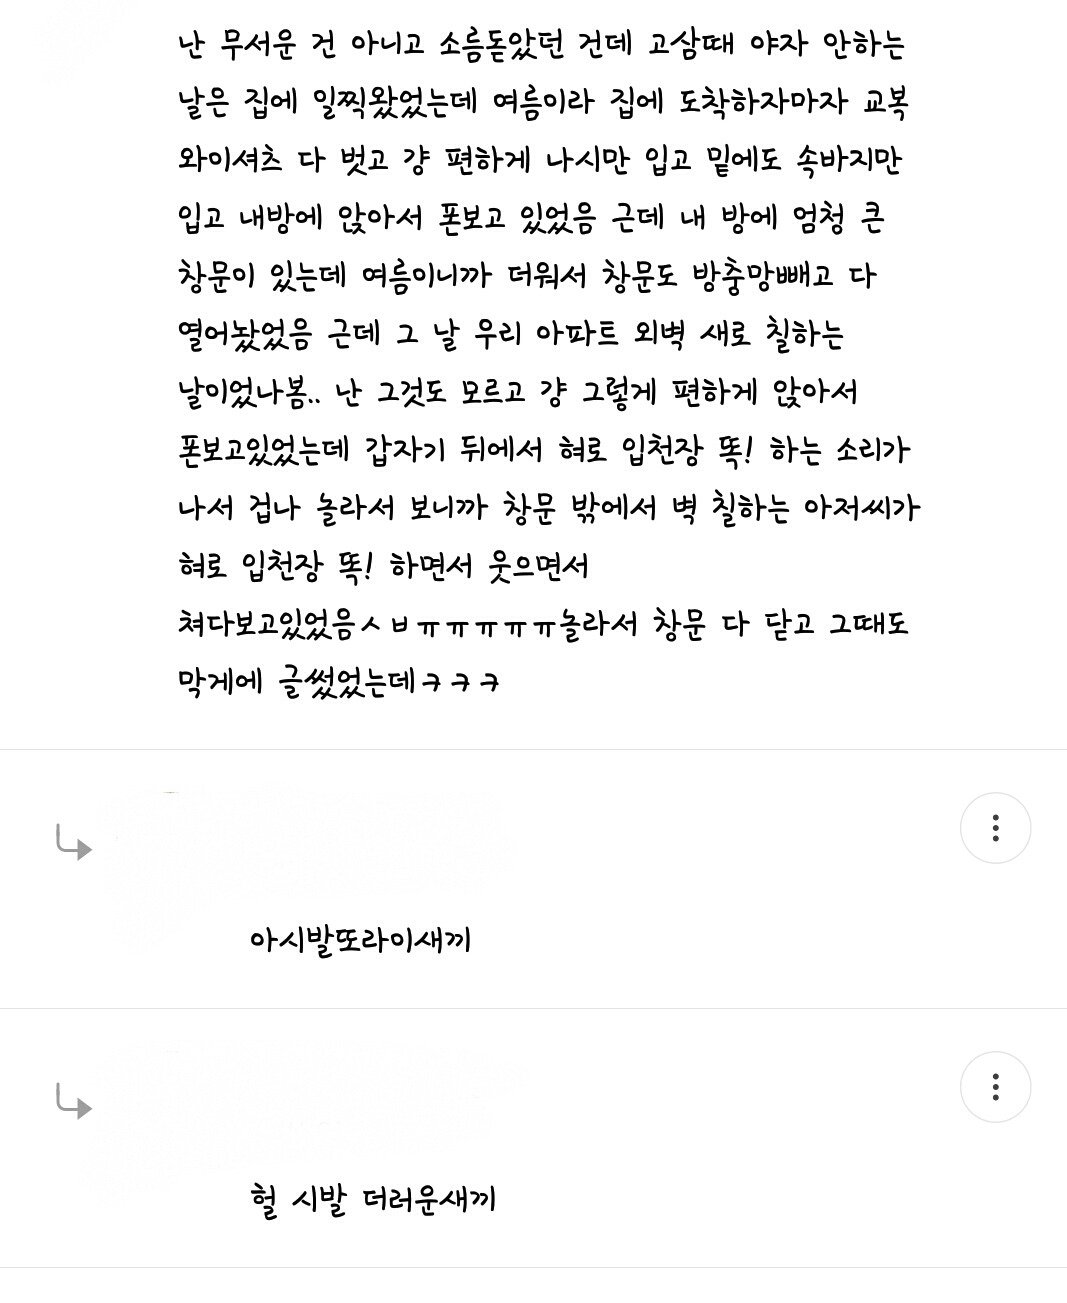 난 무서운 건 아니고 소름돋았던 건데 고삼때 야자 안하는
날은 집에 일찍왔었는데 여름이라 집에 도착하자마자 교복
와이셔츠 다 벗고 걍 편하게 나시만 입고 밑에도 속바지만
입고 내방에 앉아서 폰보고 있었음 근데 내 방에 엄청 큰
창문이 있는데 여름이니까 더워서 창문도 방충망빼고 다
열어놨었음 근데 그 날 우리 아파트 외벽 새로 칠하는
날이었나봄.. 난 그것도 모르고 걍 그렇게 편하게 앉아서
폰보고있었는데 갑자기 뒤에서 혀로 입천장 똑! 하는 소리가
나서 겁나 놀라서 보니까 창문 밖에서 벽 칠하는 아저씨가
혀로 입천장 똑! 하면서 웃으면서
쳐다보고있었음ㅅㅂㅠㅠㅠㅠㅠ놀라서 창문 다 닫고 그때도
막게에 글썼었는데ㅋㅋㅋ
아시발또라이새끼
헐 시발 더러운새끼